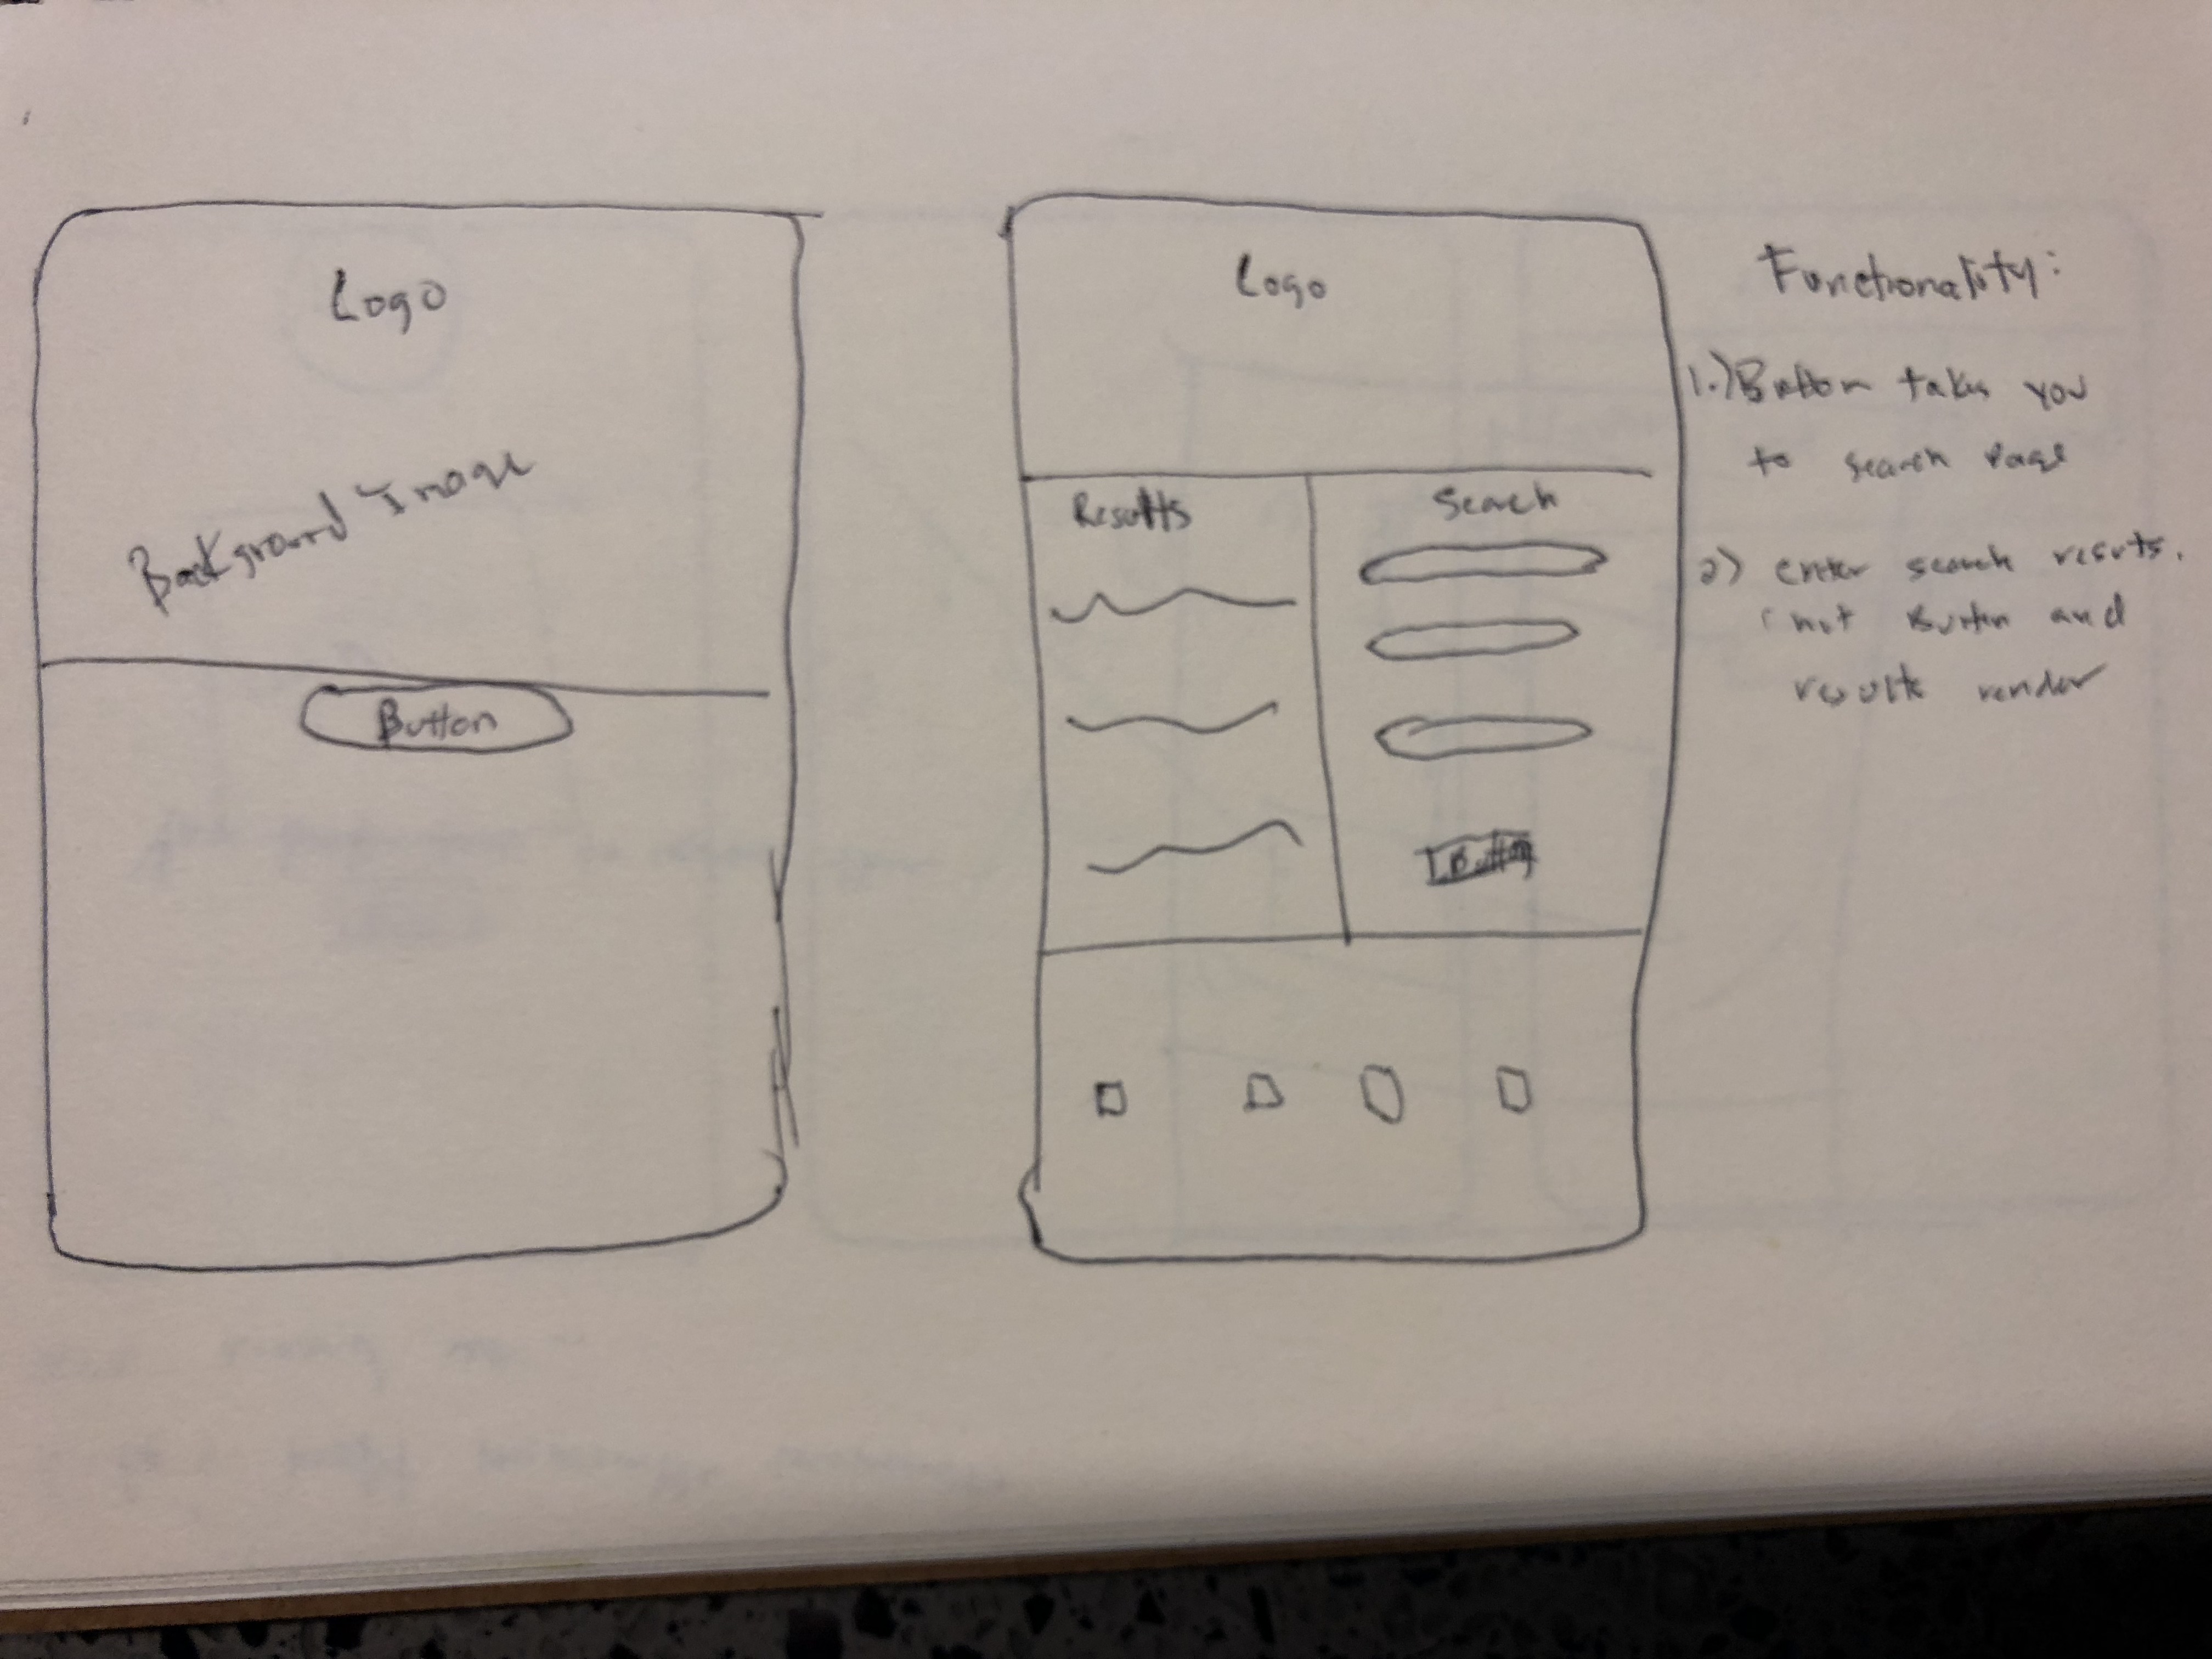 Logo
Background Image
Button
Logo
Results
Search
Button
Functionality:
1.) Button takes you
to search page
2) enter search results.
hit Button and
results render